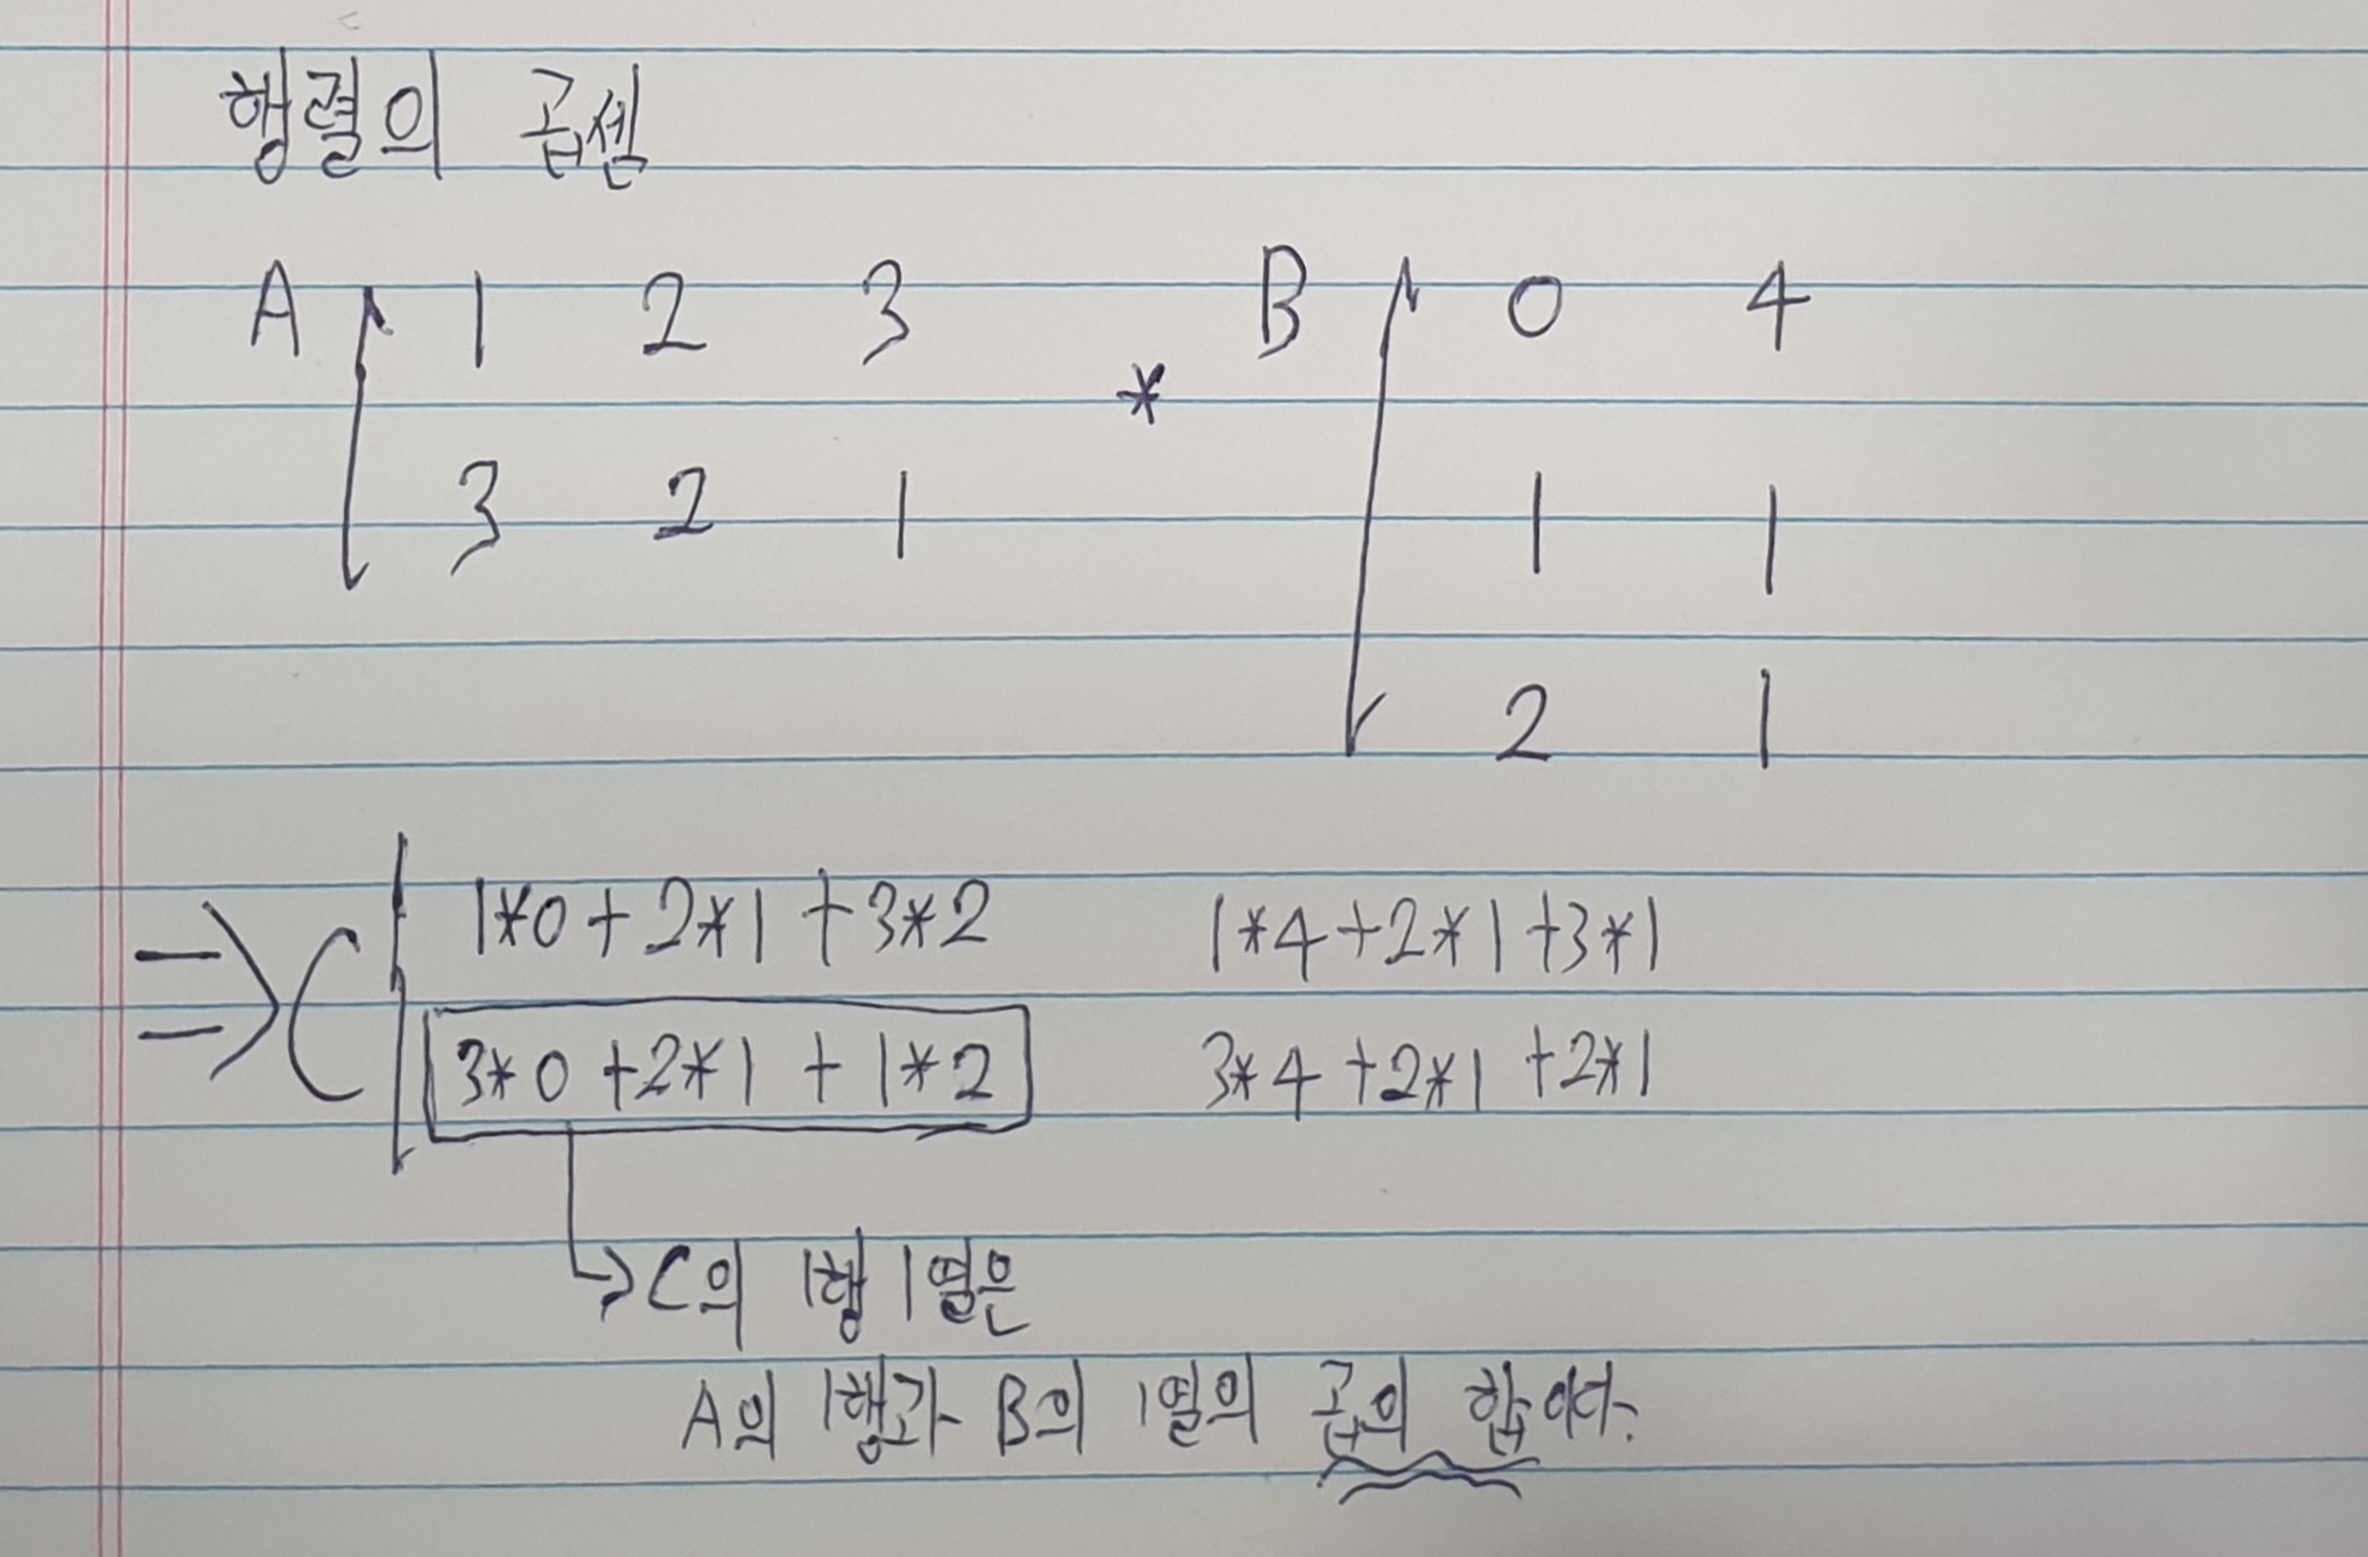 행렬의 곱셈
A 1 2 3 * B 0 4
3 2 1 1 1
2 1
=> C 1*0+2*1+3*2 1*4+2*1+3*1
3*0+2*1+1*2 3*4+2*1+2*1
→ C의 1행 1열은
A의 1행과 B의 1열의 곱의 합이다.